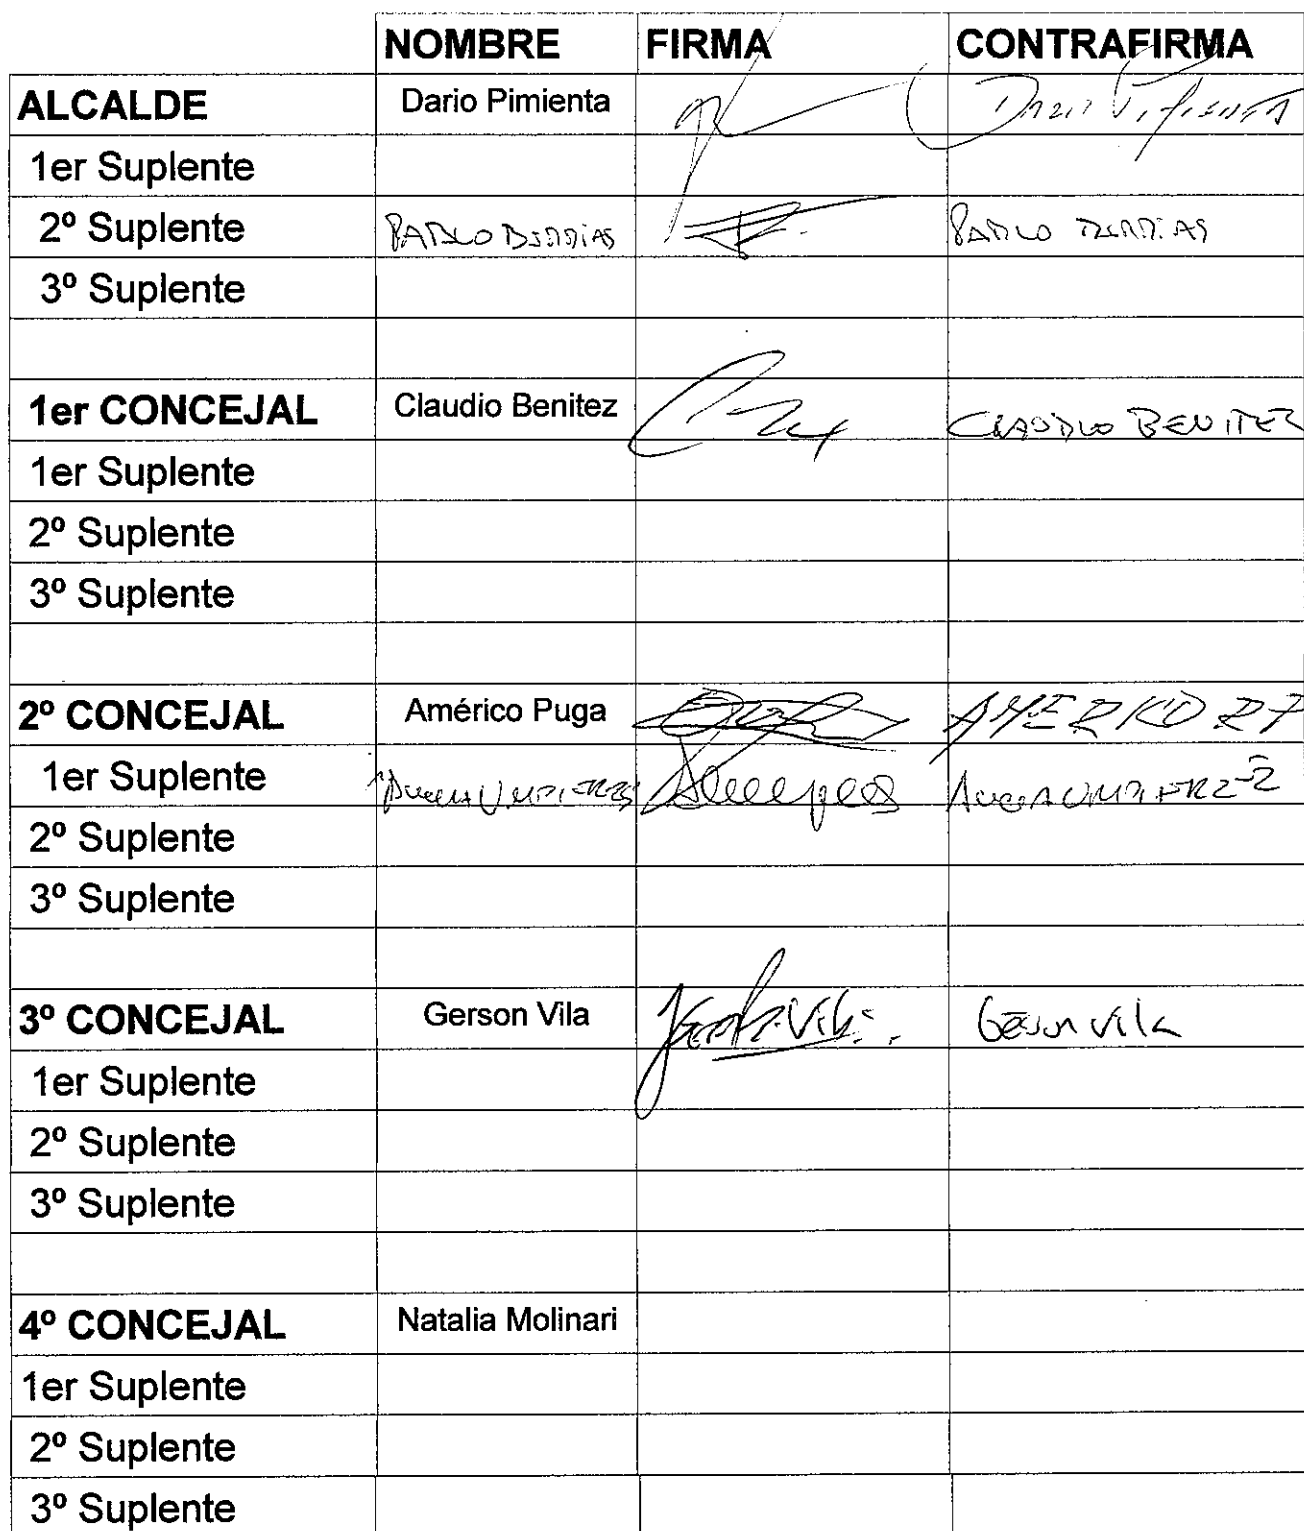 NOMBRE FIRMA CONTRAFIRMA
ALCALDE Dario Pimienta Dario Pimienta
1er Suplente
2º Suplente PABLO PABLO
3º Suplente
1er CONCEJAL Claudio Benitez CLAUDIO BENITEZ
1er Suplente
2º Suplente
3º Suplente
2º CONCEJAL Américo Puga AMERICO
1er Suplente
2º Suplente
3º Suplente
3º CONCEJAL Gerson Vila Gerson Vila
1er Suplente
2º Suplente
3º Suplente
4º CONCEJAL Natalia Molinari
1er Suplente
2º Suplente
3º Suplente